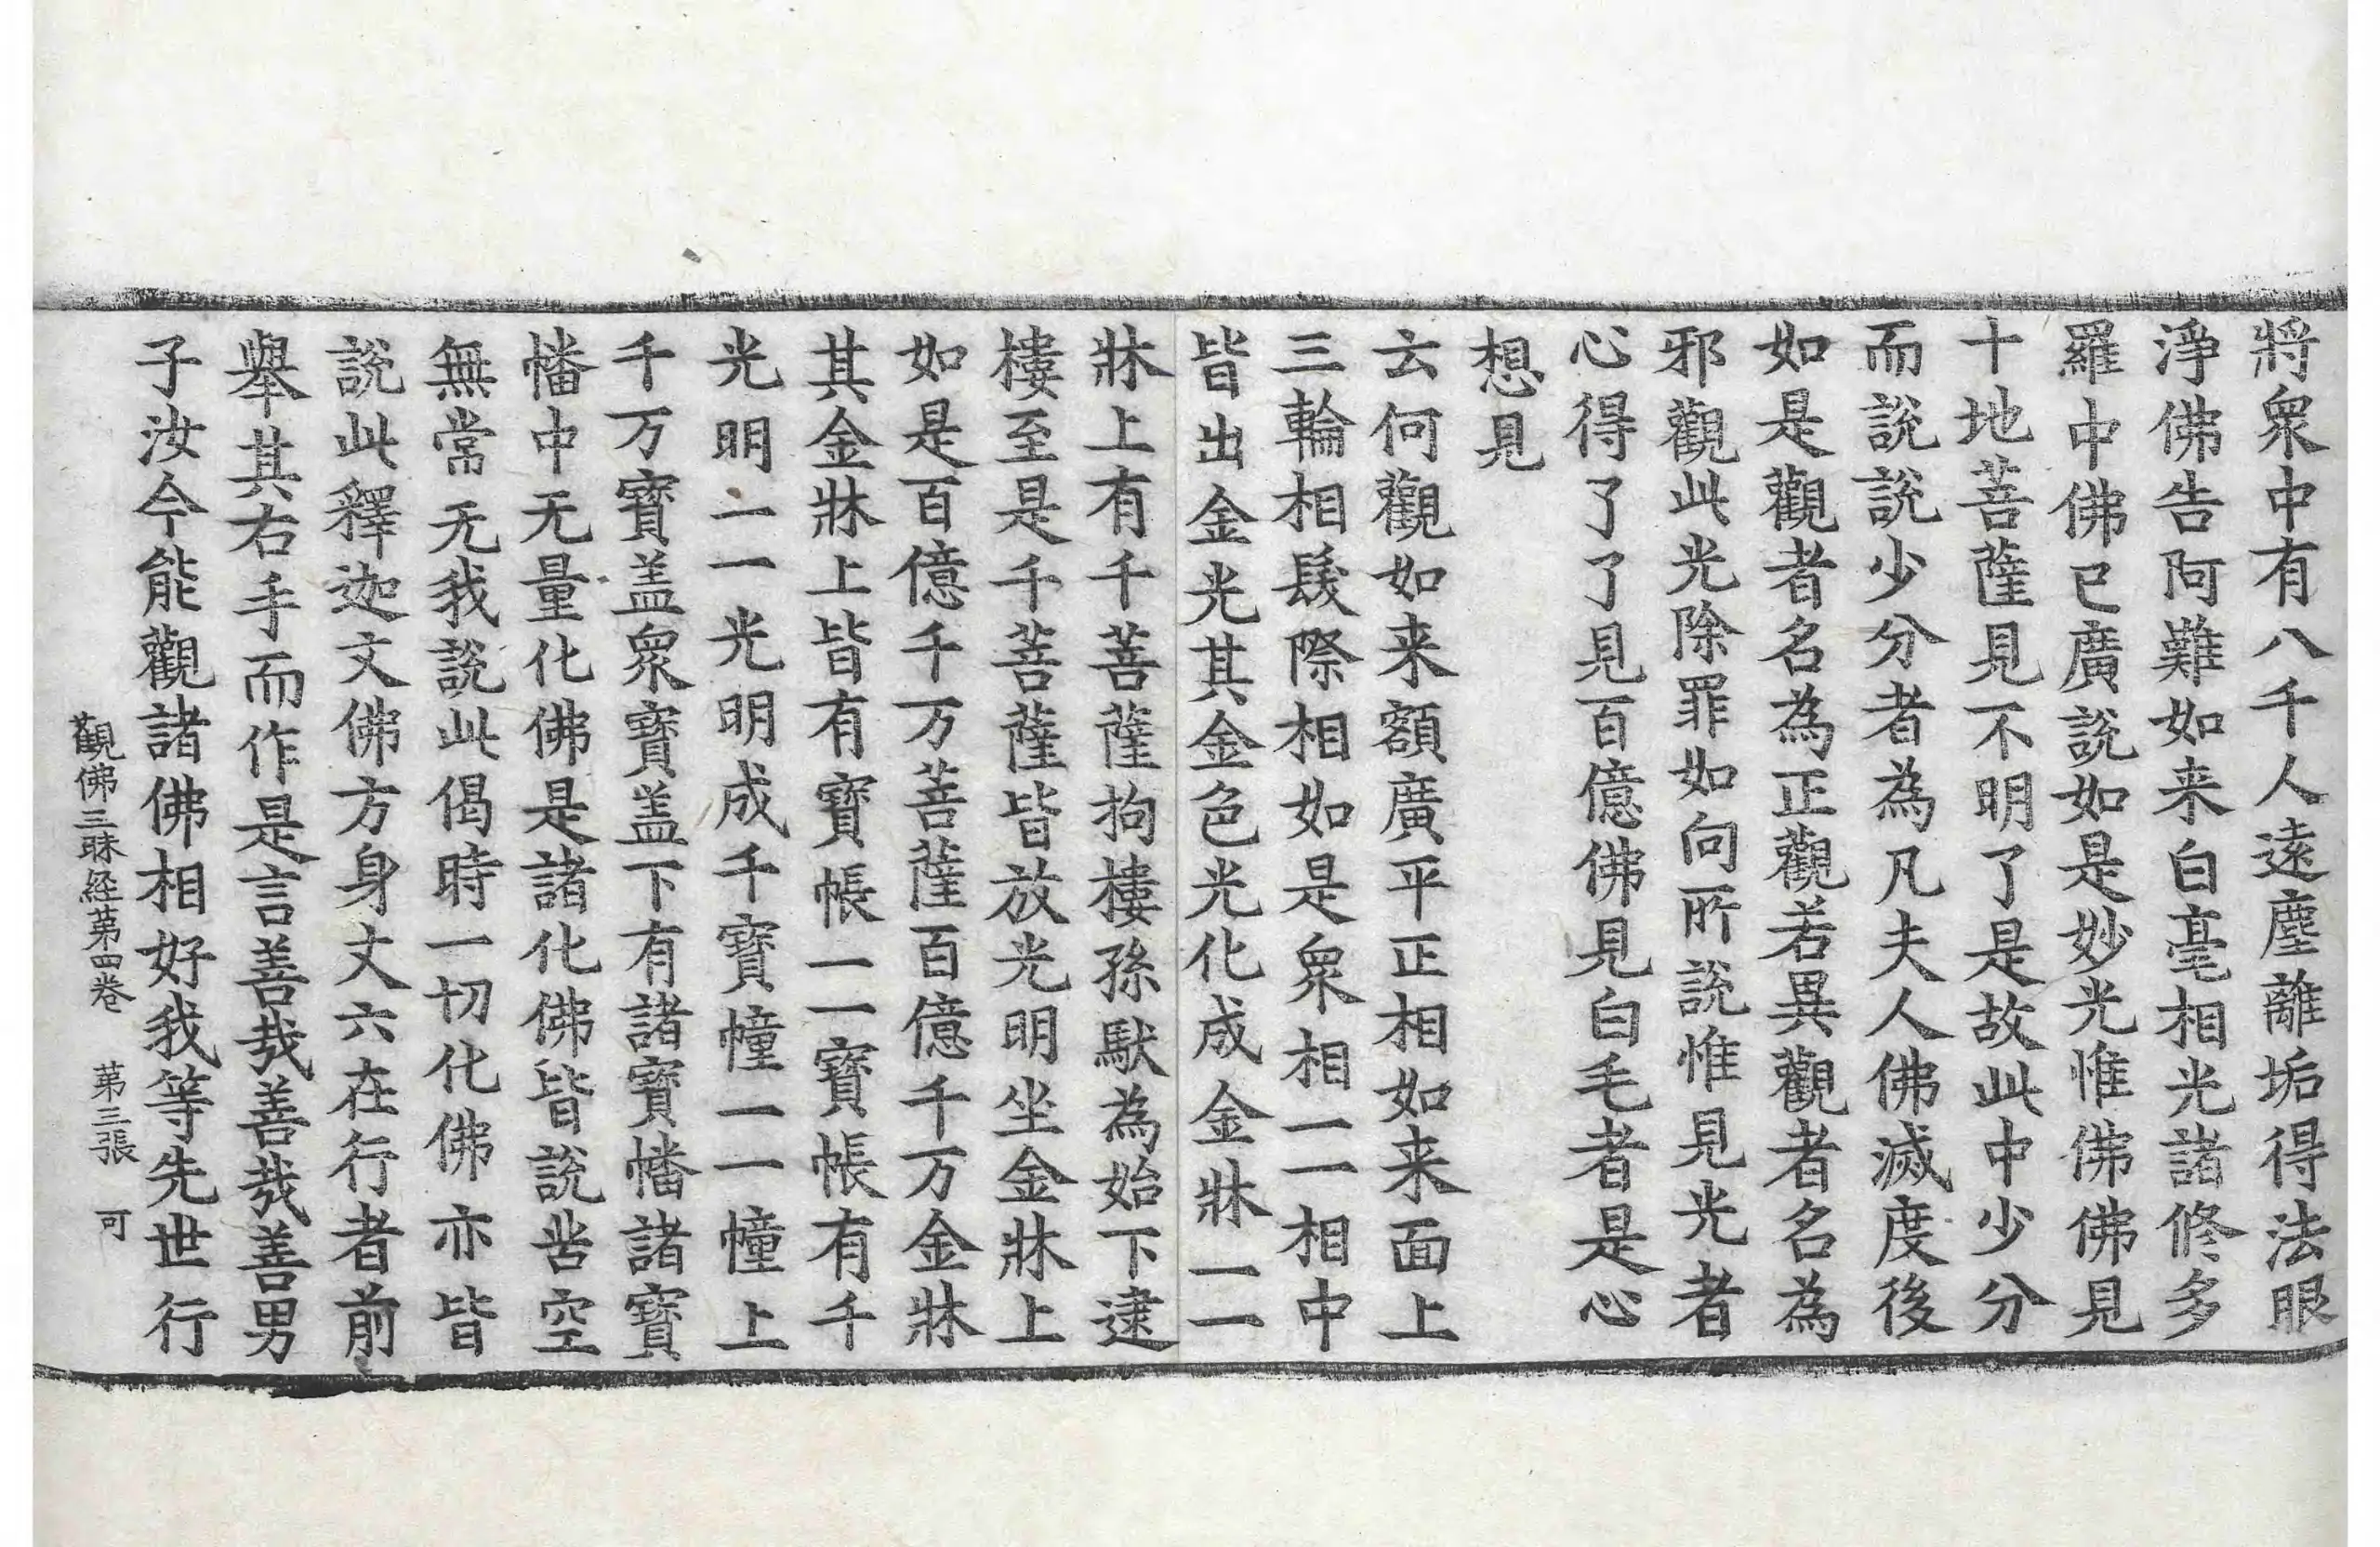 將衆中有八千人遠塵離垢得法眼
淨佛告阿難如来白毫相光諸修多
羅中佛已廣說如是妙光惟佛佛見
十地菩薩見不明了是故此中少分
而說說少分者為凡夫人佛滅度後
如是觀者名為正觀若異觀者名為
邪觀此光除罪如向所說惟見光者
心得了了見百億佛見白毛者是心
想見
云何觀如来額廣平正相如来面上
三輪相髮際相如是衆相一一相中
皆出金光其金色光化成金牀一一
牀上有千菩薩拘樓孫䭾為始下逮
樓至是千菩薩皆放光明坐金牀上
如是百億千万菩薩百億千万金牀
其金牀上皆有寶帳一一寶帳有千
光明一一光明成千寶幢一一幢上
千万寶盖衆寶盖下有諸寶幡諸寶
幡中无量化佛是諸化佛皆說苦空
無常无我說此偈時一切化佛亦皆
說此釋迦文佛方身丈六在行者前
舉其右手而作是言善哉善哉善男
子汝今能觀諸佛相好我等先世行
觀佛三昧経苐四卷　苐三張　可